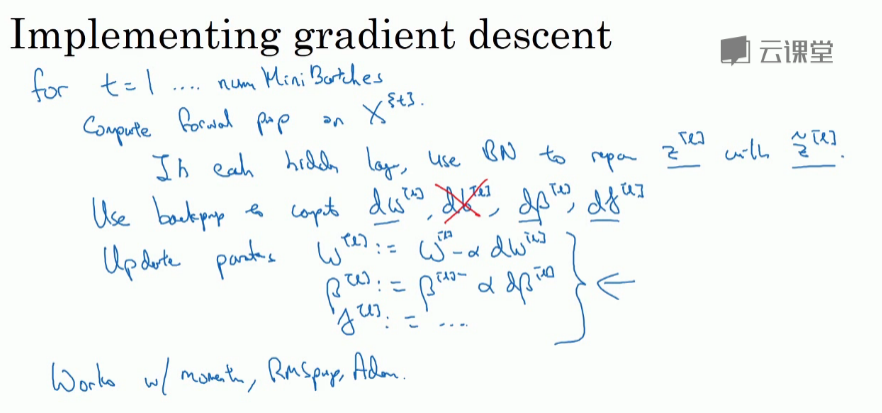 Implementing gradient descent
云课堂
for t = 1 .... num Mini Batches
Compute forwal pop on X^{t}.
In eah hidde lay, use BN to repan z^[l] with z̃^[l].
Use backprop to compt dw^[l], db^[l], dβ^[l], dγ^[l]
Update partes W^[l] := W^[l] - α dw^[l]
β^[l] := β^[l] - α dβ^[l]
γ^[l] := ....
Works w/ moment, RMSprop, Adam.